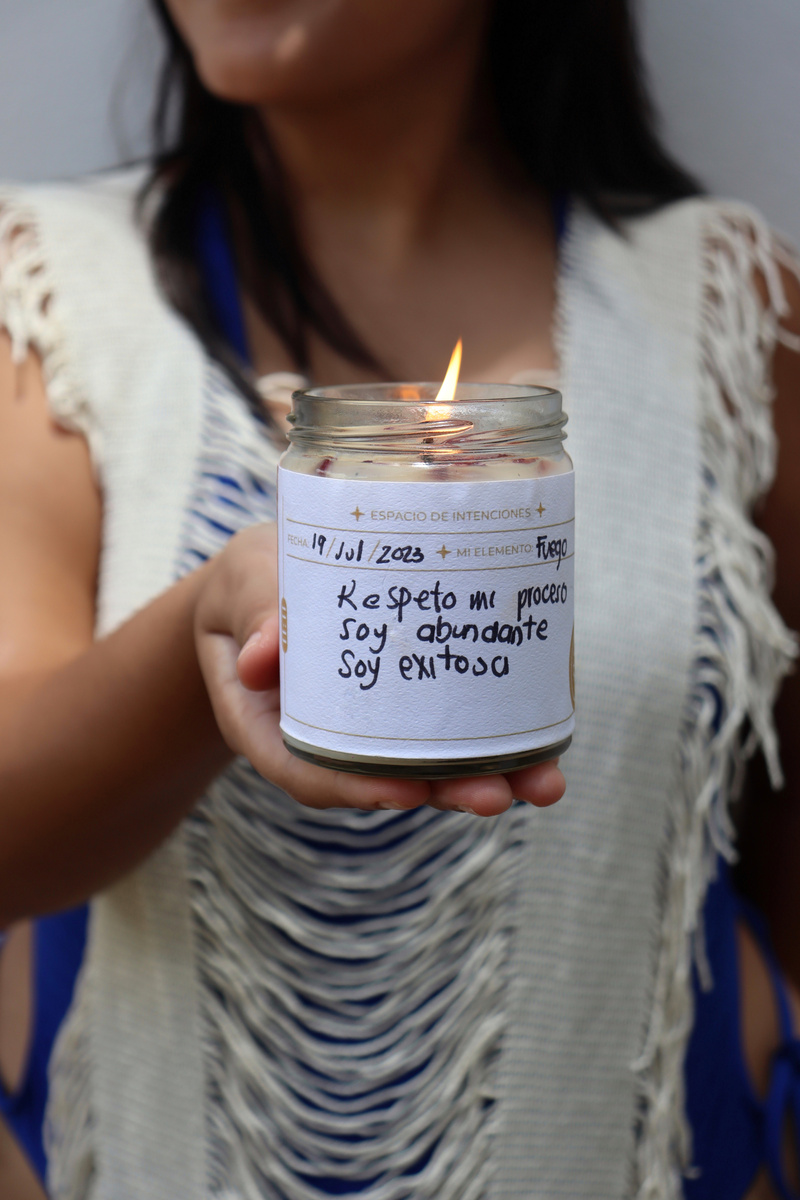 ESPACIO DE INTENCIONES
FECHA: 19/Jul/2023 MI ELEMENTO: Fuego
Respeto mi proceso
Soy abundante
Soy exitosa